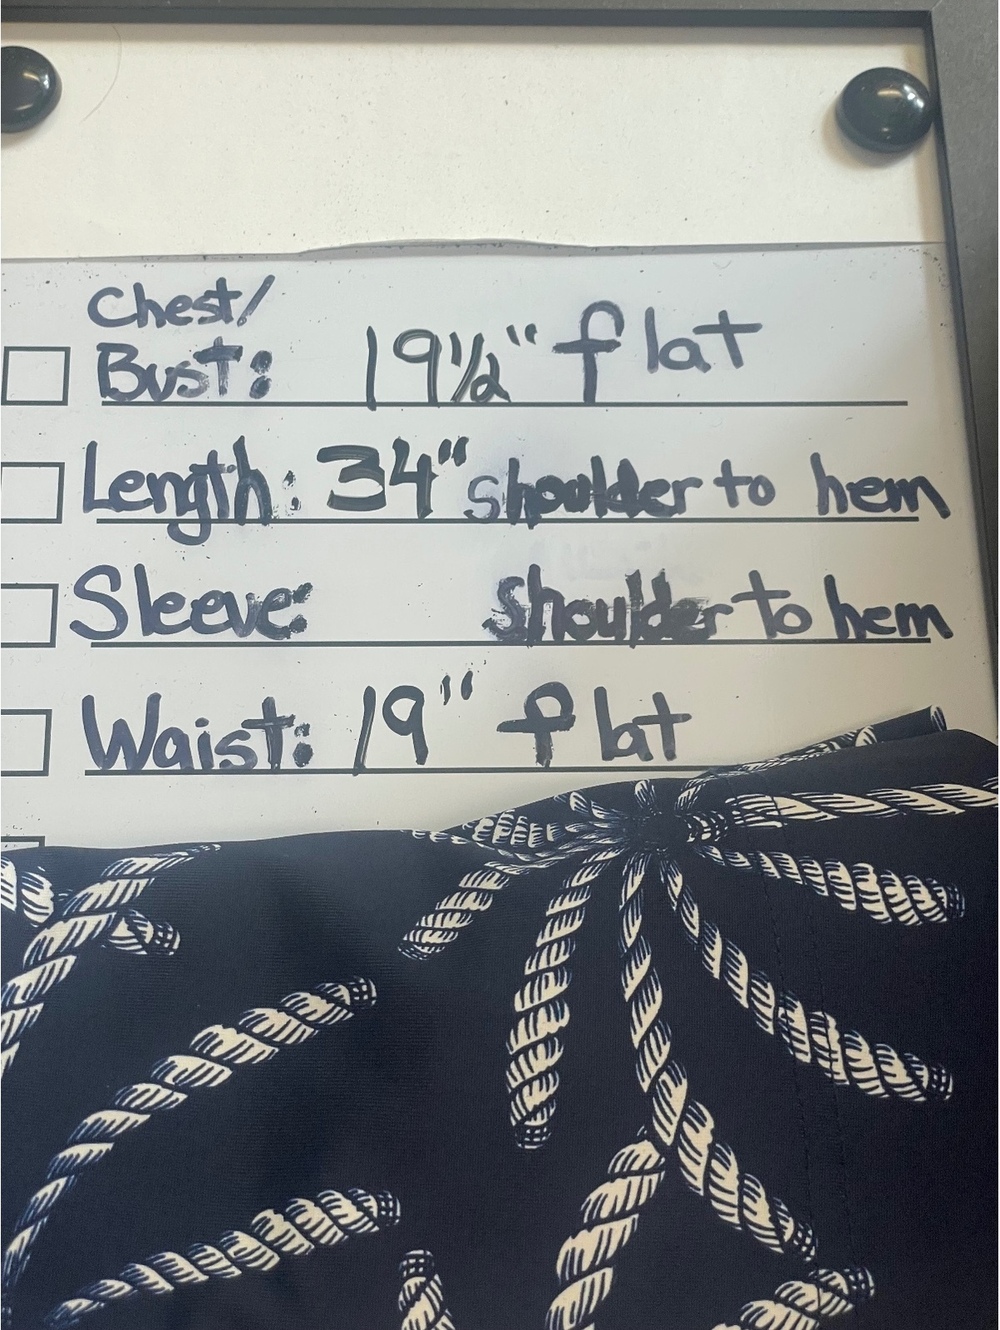 Chest/
Bust: 19½" flat
Length: 34" shoulder to hem
Sleeve: shoulder to hem
Waist: 19" flat